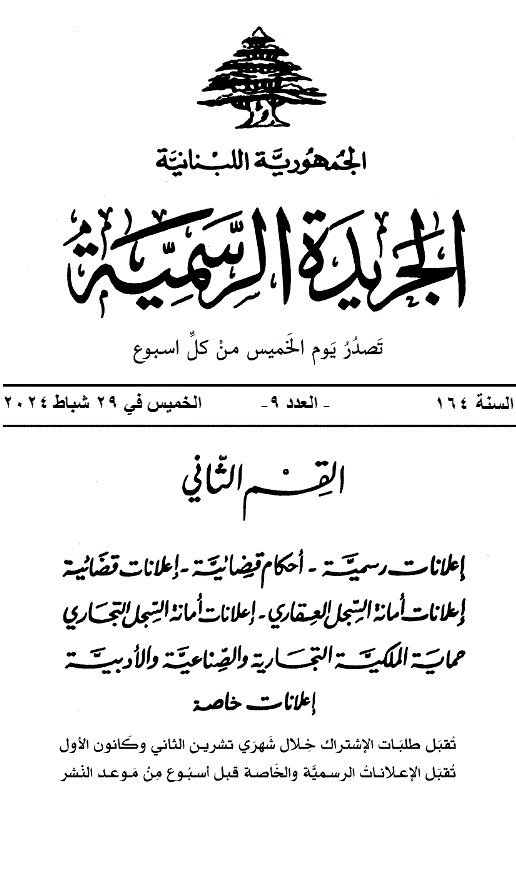 الجُمهُوريَّة اللبْنانيَّة
الجَريدَة الرسَّمِيَّة
تَصدُرُ يَوم الخَميس منْ كلِّ اسبوع
السنة ١٦٤ - العدد ٩- الخميس في ٢٩ شباط ٢٠٢٤
القِسْم الثّاني
إعلانات رسميَّة - أحكام قضائيَّة - إعلانات قضائية
إعلانات أمانة السِّجل العقاري - إعلانات أمانة السِّجل التجاري
حماية الملكيَّة التجارية والصِّناعيَّة والأدبيَّة
إعلانات خاصة
تُقبَل طلبَات الإشتراك خِلال شَهرَي تشرين الثاني وكَانون الأول
تُقبَل الإعلاناتُ الرسميَّة والخَاصة قبل أسبُوع مِنْ مَوعد النَشر